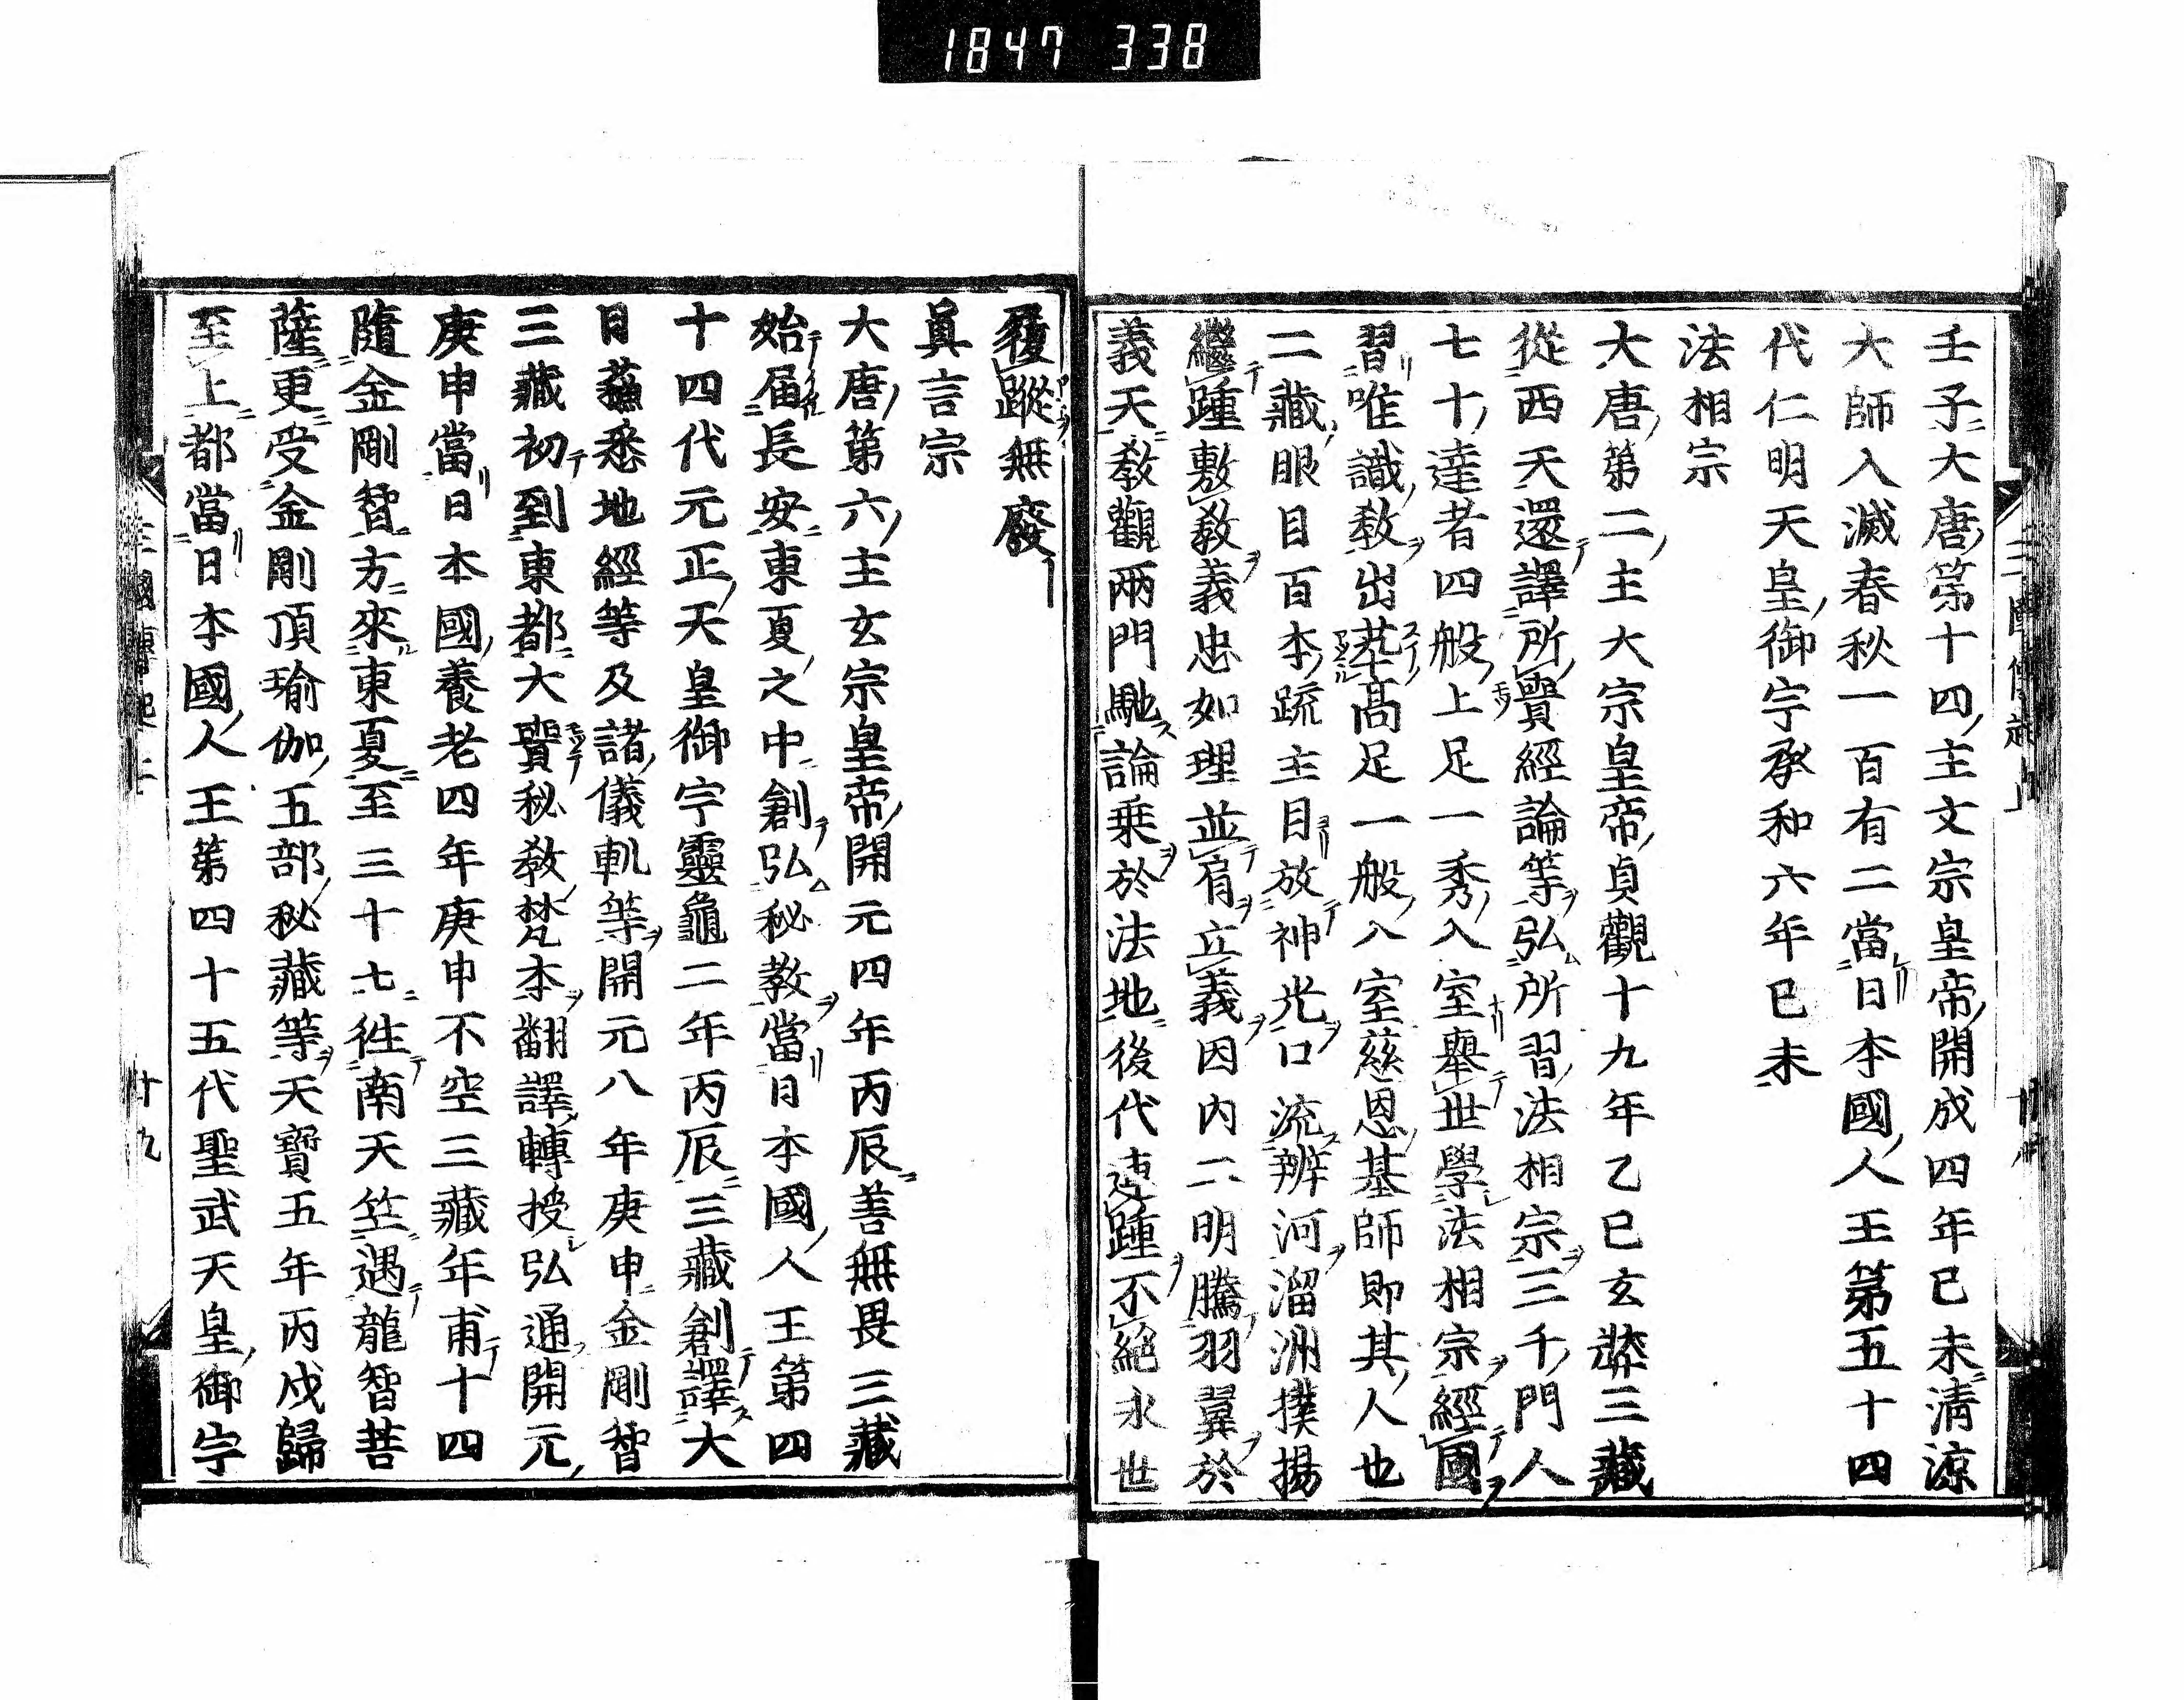 1847 338
壬子大唐第十四主文宗皇帝開成四年已未淸涼
大師入滅春秋一百有二當日本國人王第五十四
代仁明天皇御宇承和六年已未
法相宗
大唐第二主大宗皇帝貞觀十九年乙巳玄奘三藏
從西天還譯所賷經論等弘所習法相宗三千門人
七十達者四般上足一秀入室舉世學法相宗經國
習唯識敎出拳髙足一般入室慈恩基師即其人也
二藏眼目百本䟽主目放神光口流辨河溜洲撲揚
繼踵敷敎義忠如理並肩立義因内二明騰羽翼於
義天敎觀兩門馳論乗於法地後代遠踵不絶永世
履蹤無廢
眞言宗
大唐第六主玄宗皇帝開元四年丙辰善無畏三藏
始届長安東夏之中創弘秘敎當日本國人王第四
十四代元正天皇御宇靈龜二年丙辰三藏創譯大
日蘓悉地經等及諸儀軌等開元八年庚申金剛智
三藏初到東都大賷秘敎梵本翻譯轉授弘通開元
庚申當日本國養老四年庚申不空三藏年甫十四
隨金剛智方來東夏至三十七徃南天竺遇龍智菩
薩更受金剛頂瑜伽五部秘藏等天寶五年丙戌歸
至上都當日本國人王第四十五代聖武天皇御宇
三國傳起上
十九